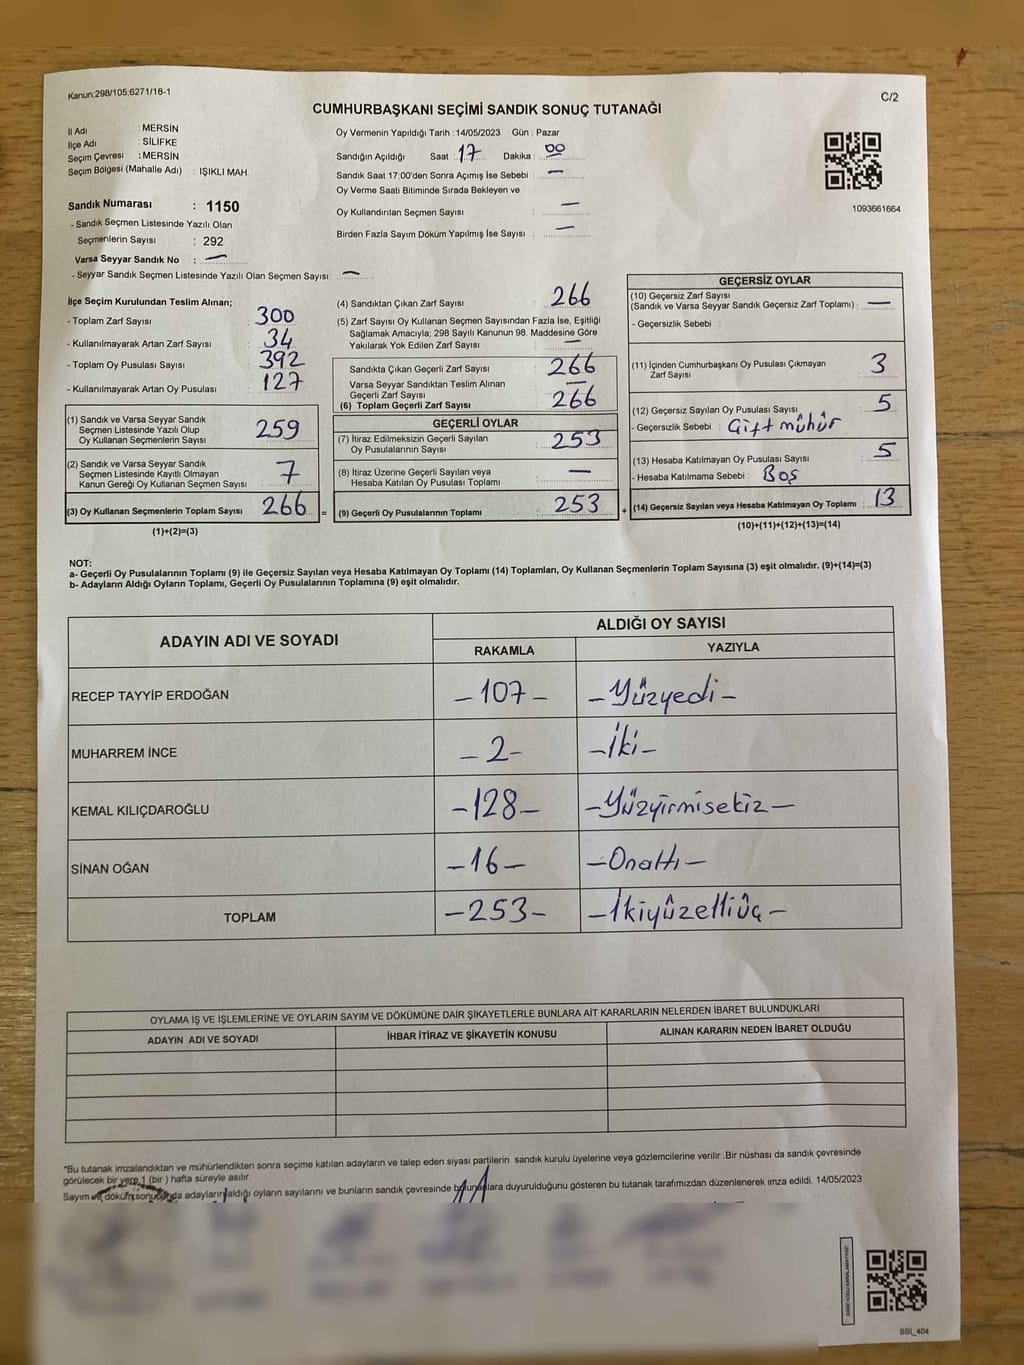 Kanun;298/105;6271/18-1
C/2
CUMHURBAŞKANI SEÇİMİ SANDIK SONUÇ TUTANAĞI
İl Adı : MERSİN
İlçe Adı : SİLİFKE
Seçim Çevresi : MERSİN
Seçim Bölgesi (Mahalle Adı) : IŞIKLI MAH.
Sandık Numarası : 1150
- Sandık Seçmen Listesinde Yazılı Olan
Seçmenlerin Sayısı : 292
Varsa Seyyar Sandık No : —
- Seyyar Sandık Seçmen Listesinde Yazılı Olan Seçmen Sayısı: —
Oy Vermenin Yapıldığı Tarih : 14/05/2023 Gün : Pazar
Sandığın Açıldığı Saat : 17 Dakika : 00
Sandık Saat 17:00'den Sonra Açımış İse Sebebi : —
Oy Verme Saati Bitiminde Sırada Bekleyen ve
Oy Kullandırılan Seçmen Sayısı : —
Birden Fazla Sayım Döküm Yapılmış İse Sayısı : —
1093661664
İlçe Seçim Kurulundan Teslim Alınan;
- Toplam Zarf Sayısı : 300
- Kullanılmayarak Artan Zarf Sayısı : 34
- Toplam Oy Pusulası Sayısı : 392
- Kullanılmayarak Artan Oy Pusulası : 127
(1) Sandık ve Varsa Seyyar Sandık
Seçmen Listesinde Yazılı Olup
Oy Kullanan Seçmenlerin Sayısı : 259
(2) Sandık ve Varsa Seyyar Sandık
Seçmen Listesinde Kayıtlı Olmayan
Kanun Gereği Oy Kullanan Seçmen Sayısı : 7
(3) Oy Kullanan Seçmenlerin Toplam Sayısı : 266 =
(1)+(2)=(3)
(4) Sandıktan Çıkan Zarf Sayısı : 266
(5) Zarf Sayısı Oy Kullanan Seçmen Sayısından Fazla İse, Eşitliği
Sağlamak Amacıyla; 298 Sayılı Kanunun 98. Maddesine Göre
Yakılarak Yok Edilen Zarf Sayısı : —
Sandıkta Çıkan Geçerli Zarf Sayısı : 266
Varsa Seyyar Sandıktan Teslim Alınan
Geçerli Zarf Sayısı : —
(6) Toplam Geçerli Zarf Sayısı : 266
GEÇERLİ OYLAR
(7) İtiraz Edilmeksizin Geçerli Sayılan
Oy Pusulalarının Sayısı : 253
(8) İtiraz Üzerine Geçerli Sayılan veya
Hesaba Katılan Oy Pusulası Toplamı : —
(9) Geçerli Oy Pusulalarının Toplamı : 253 +
GEÇERSİZ OYLAR
(10) Geçersiz Zarf Sayısı
(Sandık ve Varsa Seyyar Sandık Geçersiz Zarf Toplamı) : —
- Geçersizlik Sebebi :
(11) İçinden Cumhurbaşkanı Oy Pusulası Çıkmayan
Zarf Sayısı : 3
(12) Geçersiz Sayılan Oy Pusulası Sayısı : 5
- Geçersizlik Sebebi : Çift mühür
(13) Hesaba Katılmayan Oy Pusulası Sayısı : 5
- Hesaba Katılmama Sebebi : Boş
(14) Geçersiz Sayılan veya Hesaba Katılmayan Oy Toplamı : 13
(10)+(11)+(12)+(13)=(14)
NOT:
a- Geçerli Oy Pusulalarının Toplamı (9) ile Geçersiz Sayılan veya Hesaba Katılmayan Oy Toplamı (14) Toplamları, Oy Kullanan Seçmenlerin Toplam Sayısına (3) eşit olmalıdır. (9)+(14)=(3)
b- Adayların Aldığı Oyların Toplamı, Geçerli Oy Pusulalarının Toplamına (9) eşit olmalıdır.
ADAYIN ADI VE SOYADI
ALDIĞI OY SAYISI
RAKAMLA YAZIYLA
RECEP TAYYİP ERDOĞAN -107- -Yüzyedi-
MUHARREM İNCE -2- -İki-
KEMAL KILIÇDAROĞLU -128- -Yüzyirmisekiz-
SİNAN OĞAN -16- -Onaltı-
TOPLAM -253- -İkiyüzelliüç-
OYLAMA İŞ VE İŞLEMLERİNE VE OYLARIN SAYIM VE DÖKÜMÜNE DAİR ŞİKAYETLERLE BUNLARA AİT KARARLARIN NELERDEN İBARET BULUNDUKLARI
ADAYIN ADI VE SOYADI İHBAR İTİRAZ VE ŞİKAYETİN KONUSU ALINAN KARARIN NEDEN İBARET OLDUĞU
*Bu tutanak imzalandıktan ve mühürlendikten sonra seçime katılan adayların ve talep eden siyasi partilerin sandık kurulu üyelerine veya gözlemcilerine verilir .Bir nüshası da sandık çevresinde
görülecek bir yere 1 (bir ) hafta süreyle asılır.
Sayım ve döküm sonucunda adayların aldığı oyların sayılarını ve bunların sandık çevresinde bulunanlara duyurulduğunu gösteren bu tutanak tarafımızdan düzenlenerek imza edildi. 14/05/2023
SSİ_404